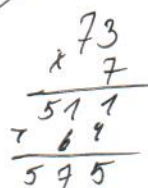 73
× 7
511
+ 64
575